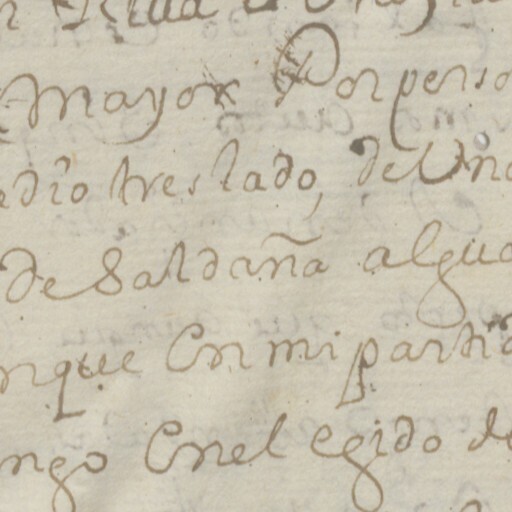 mayor Por perso
edio treslado, de Una
de Saldaña algua
nque En mi partid
ngo En el egido de